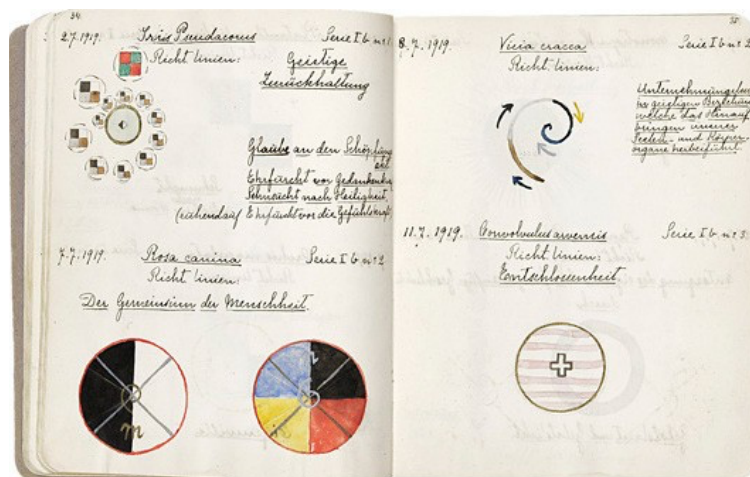 34.
2.7.1919. Iris Pseudacorus Serie I b. nr 1.
Richt linien: Geistige
Zurückhaltung
Glaube an den Schöpfungs
akt
Ehrfürcht vor Gedankenbau
Sehnsucht nach Heiligkeit.
(ruhend auf Ehrfurcht vor die Gefühlskraft)
7.7.1919. Rosa canina Serie I b nr 2
Richt linien:
Der Gemeinsinn der Menschheit.
m
8.7.1919. Vicia cracca Serie I b nr 2
Richt linien:
Unternehmungslust
der geistigen Beziehung
welche das Hinauf
bringen unserer
Seelen- und Körper-
organe herbeiführt.
11.7.1919. Convolvulus arvensis Serie I b. nr 3.
Richt linien:
Entschlossenheit